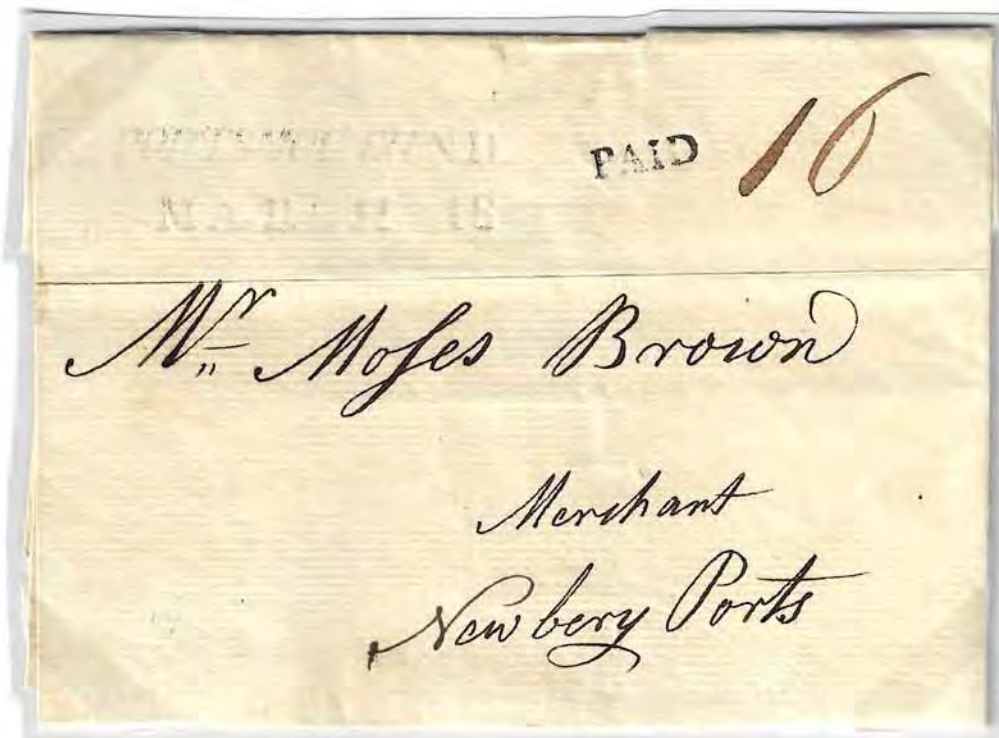 PAID 16
Mr Moses Brown
Merchant
Newbery Ports